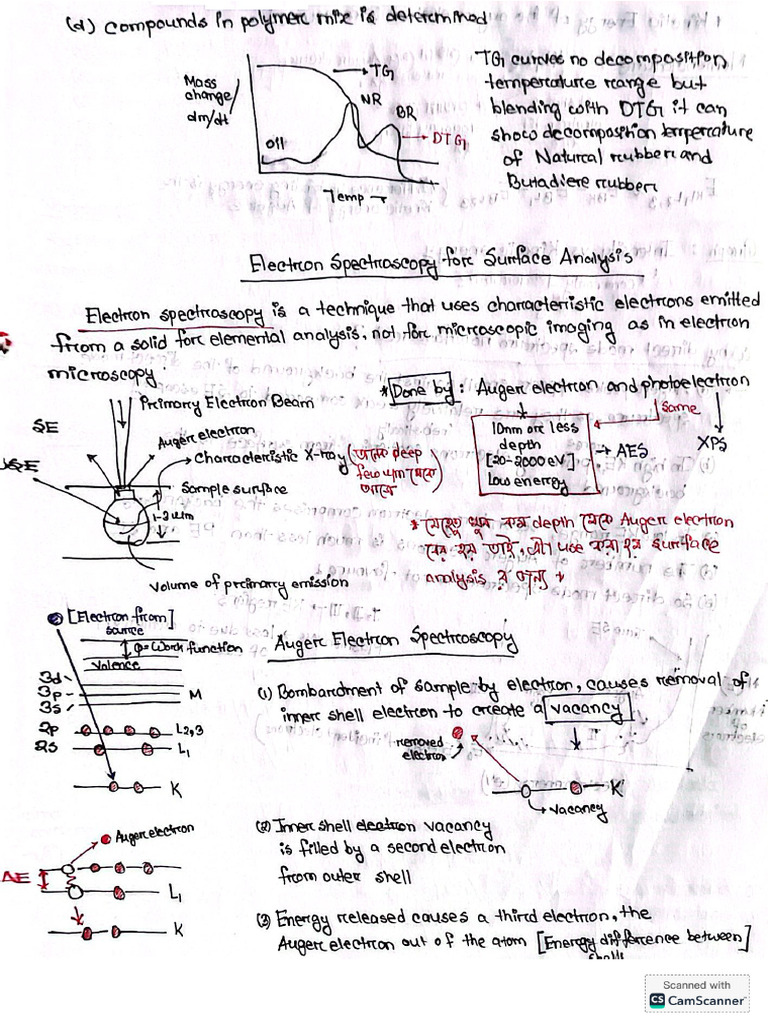 (d) Compounds in polymer mix is determined
Mass
change/
dm/dt
TG
NR
BR
DTG
Oil
Temp →
TG curves no decomposition
temperature range but
blending with DTG it can
show decomposition temperature
of Natural rubber and
Butadiere rubber
Electron Spectroscopy for Surface Analysis
Electron spectroscopy is a technique that uses characterristic electrons emitted
from a solid for elemental analysis, not for microscopic imaging as in electron
microscopy.
Primary Electron Beam
SE
Auger electron
Characteristic X-ray
deep
few um থেকে
আসে)
Sample surface
1-3 um
Volume of primary emission
* Done by : Auger electron and photoelectron
10nm or less
depth
[20-2000eV]
Low energy
→ AES
Same
XPS
* যেহেতু খুব কম depth থেকে Auger electron
বের হয় তাই, এটা use করা হয় surface
analysis র জন্য *
[Electron from]
source
φ= Work function
Valence
3d
3p
3s
M
2p
L2,3
2s
L1
K
Auger Electron Spectroscopy
(1) Bombardment of sample by electron, causes removal of
inner shell electron to create a vacancy
removed
electron
K
vacancy
Auger electron
ΔE
L1
K
(2) Inner shell electron vacancy
is filled by a second electron
from outer shell
(3) Energy released causes a third electron, the
Auger electron out of the atom [Energy difference between]
shells
Scanned with
CS CamScanner